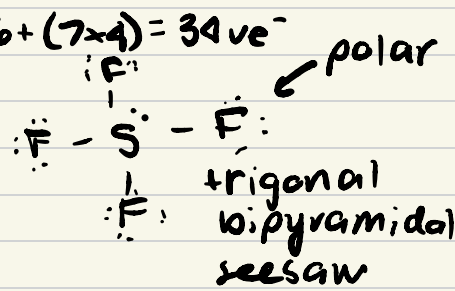 6+(7x4)= 34 ve⁻
polar
F
F - S - F
F
trigonal
bipyramidal
seesaw